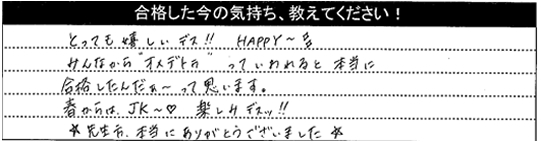 合格した今の気持ち、教えてください！
とっても嬉しいデス!! HAPPY～
みんなから"オメデトウ"っていわれると本当に
合格したんだぁ～って思います。
春からは、JK～♡ 楽しみデスッ!!
☆先生方、本当にありがとうございました☆